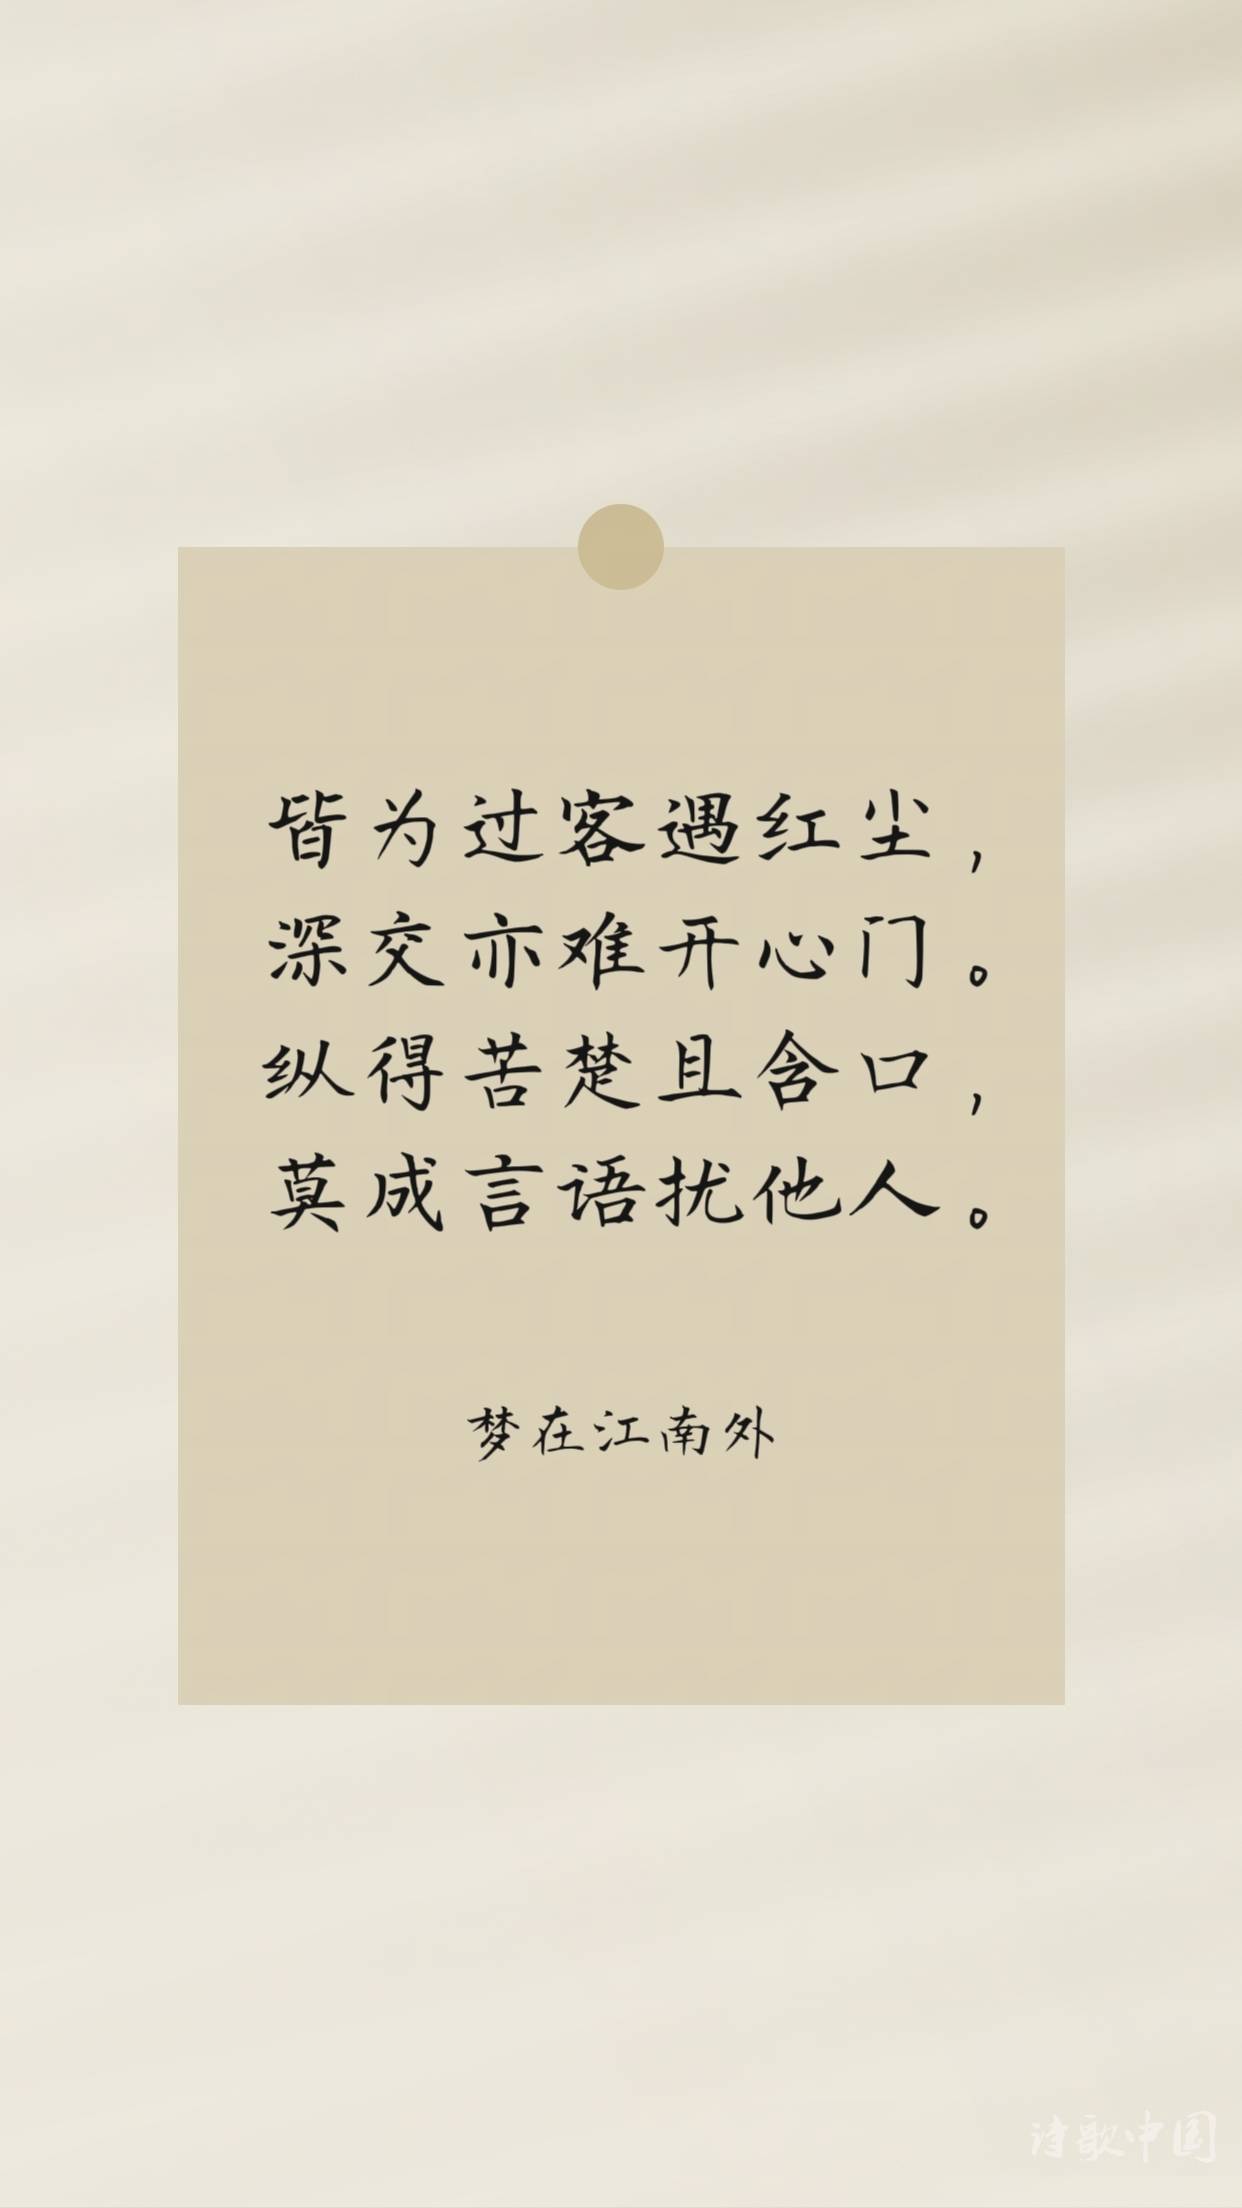 皆为过客遇红尘，
深交亦难开心门。
纵得苦楚且含口，
莫成言语扰他人。
梦在江南外
诗歌中国